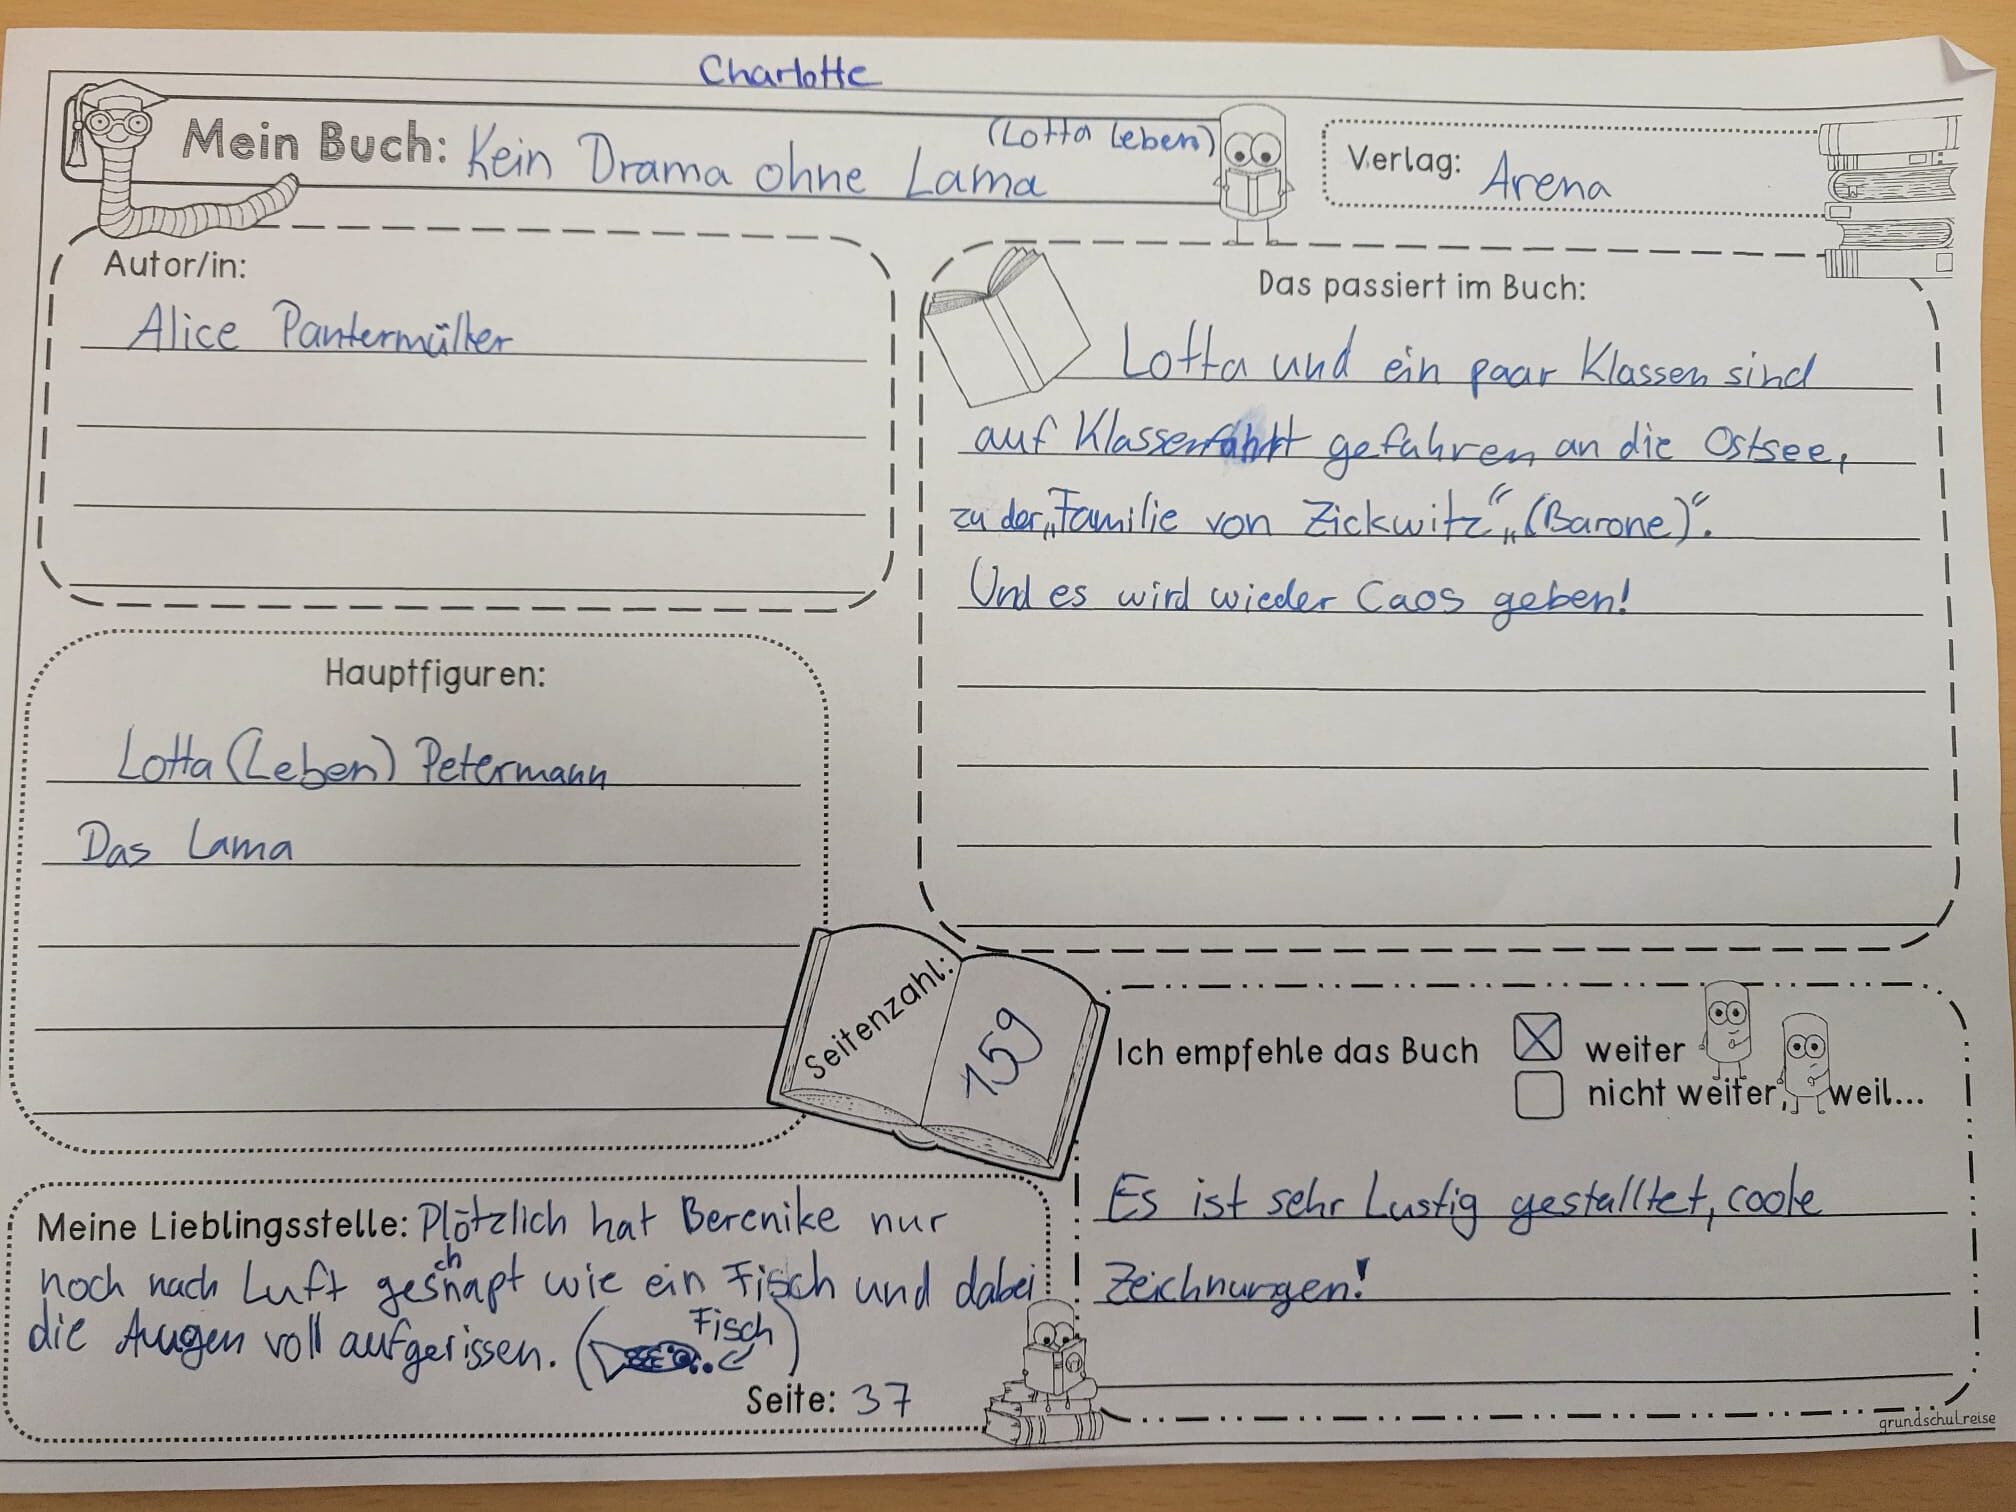 Charlotte
Mein Buch: Kein Drama ohne Lama (Lotta Leben)
Verlag: Arena
Autor/in:
Alice Pantermüller
Das passiert im Buch:
Lotta und ein paar Klassen sind
auf Klassenfahrt gefahren an die Ostsee,
zu der „Familie von Zickwitz“ „(Barone)“.
Und es wird wieder Caos geben!
Hauptfiguren:
Lotta (Leben) Petermann
Das Lama
Seitenzahl: 159
Ich empfehle das Buch
weiter
nicht weiter, weil...
Es ist sehr Lustig gestalltet, coole
Zeichnungen!
Meine Lieblingsstelle: Plötzlich hat Berenike nur
noch nach Luft geschnapt wie ein Fisch und dabei
die Augen voll aufgerissen. (Fisch)
Seite: 37
grundschulreise